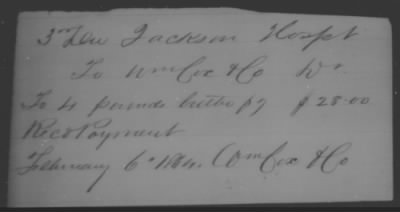 3rd Div Jackson Hospt
To Wm Cox & Co Dr
To 4 pounds butter @ 7 $28.00
Recd Payment
February 6th 1864. Wm Cox & Co